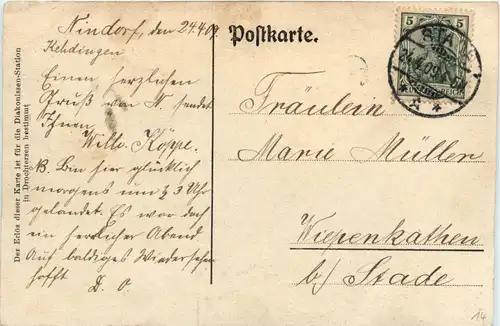 Nindorf, den 24.4.09.
Kehdingen
Einen herzlichen
Gruß von N. sendet
Ihnen
Willi Köppe.
NB. Bin hier glücklich
morgens um ½ 3 Uhr
gelandet. Es war doch
ein herrlicher Abend
Auf baldiges Wiedersehn
hofft D. O.
Der Erlös dieser Karte ist für die Diakonissen-Station
in Drochtersen bestimmt
Postkarte.
5 5
STADE
24.4.09
Fräulein
Marie Müller
Wiepenkathen
b/ Stade
14